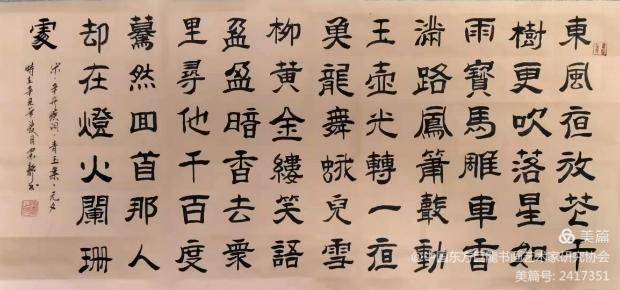 東風夜放花千
樹更吹落星如
雨寶馬雕車香
滿路鳳簫聲動
玉壺光轉一夜
魚龍舞蛾兒雪
柳黃金縷笑語
盈盈暗香去衆
里尋他千百度
驀然回首那人
却在燈火闌珊
處
宋·辛弃疾词·青玉案·元夕
時在辛丑年 月 书
美篇
@中国东方巨龙书画艺术家研究协会
美篇号: 2417351